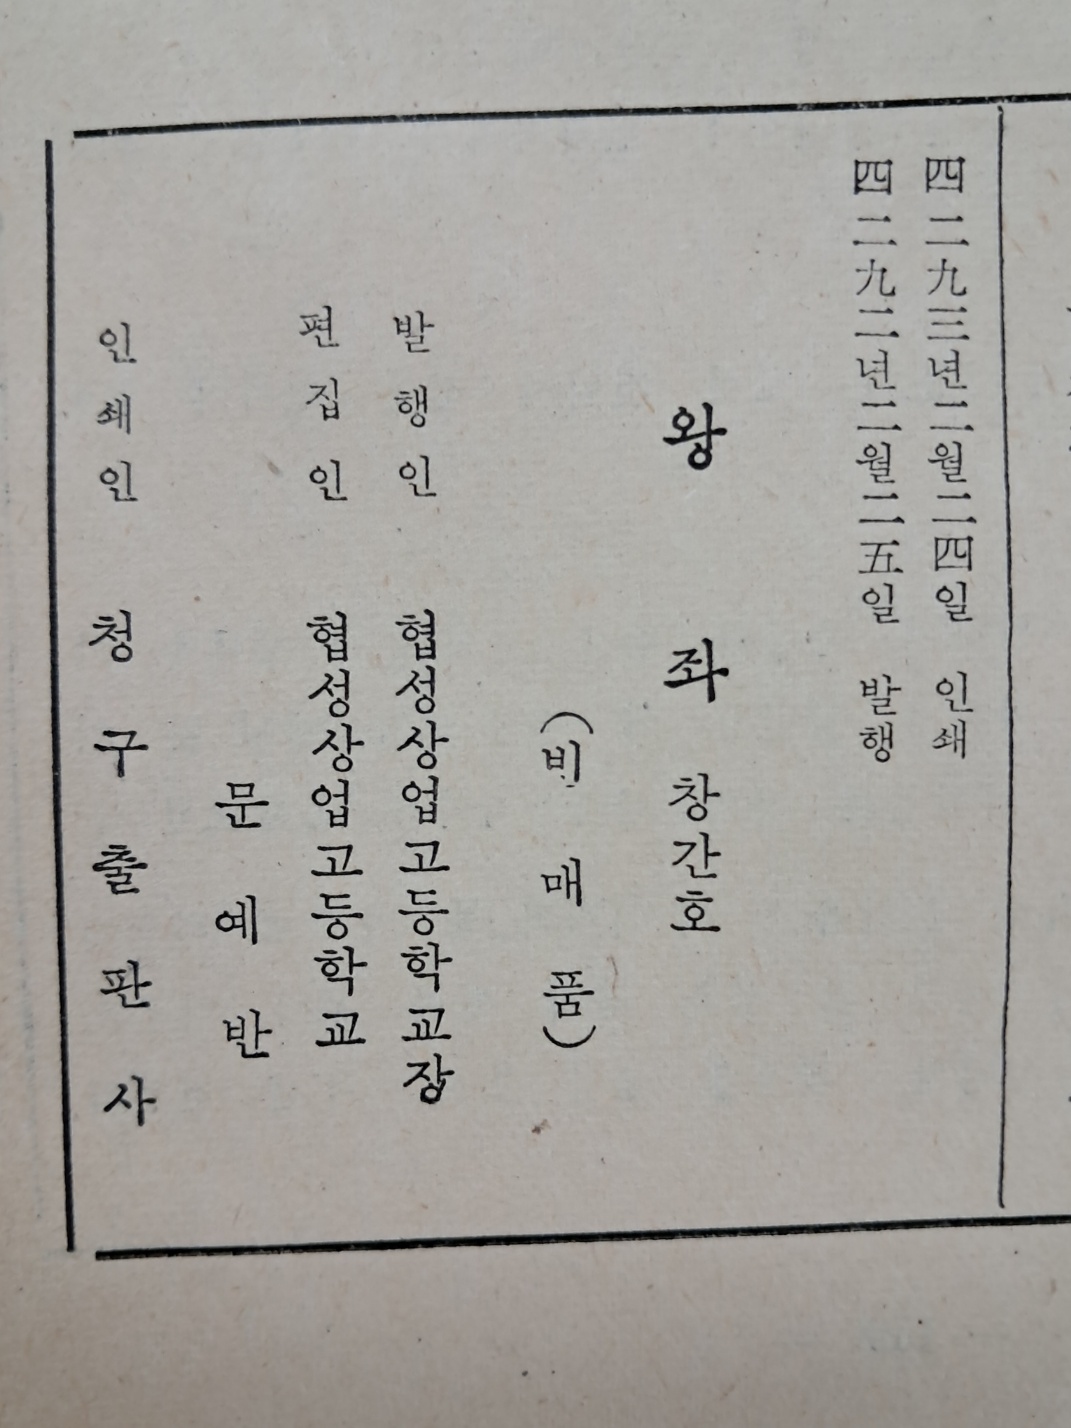 四二九三년二월二四일 인쇄
四二九二년二월二五일 발행
왕좌 창간호
(비매품)
발행인 협성상업고등학교장
편집인 협성상업고등학교
문예반
인쇄인 청구출판사